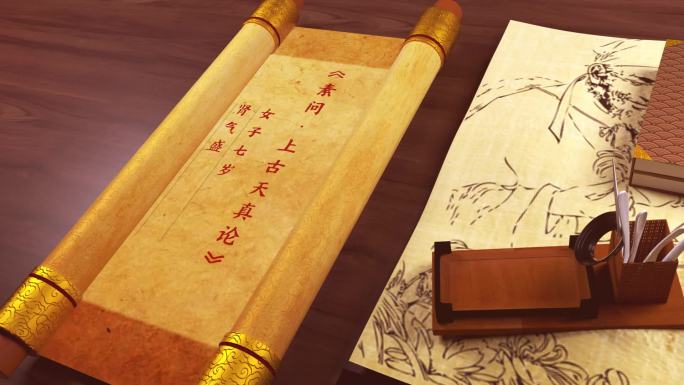 《素问·上古天真论》
女子七岁
肾气盛